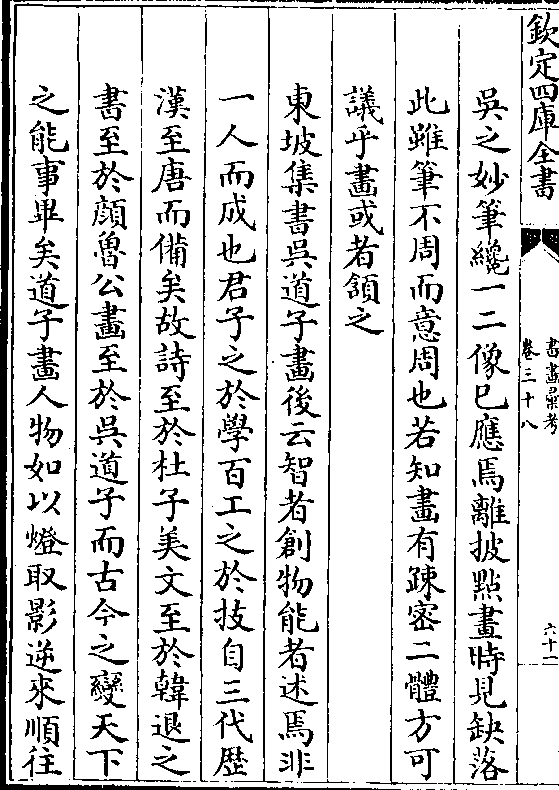 欽定四庫全書
書畫彙考
卷三十八
六十一
吳之妙筆纔一二像已應焉離披點畫時見缺落
此雖筆不周而意周也若知畫有疎密二體方可
議乎畫或者頷之
東坡集書吳道子畫後云智者創物能者述焉非
一人而成也君子之於學百工之於技自三代歴
漢至唐而備矣故詩至於杜子美文至於韓退之
書至於顔魯公畫至於吳道子而古今之變天下
之能事畢矣道子畫人物如以燈取影逆來順往